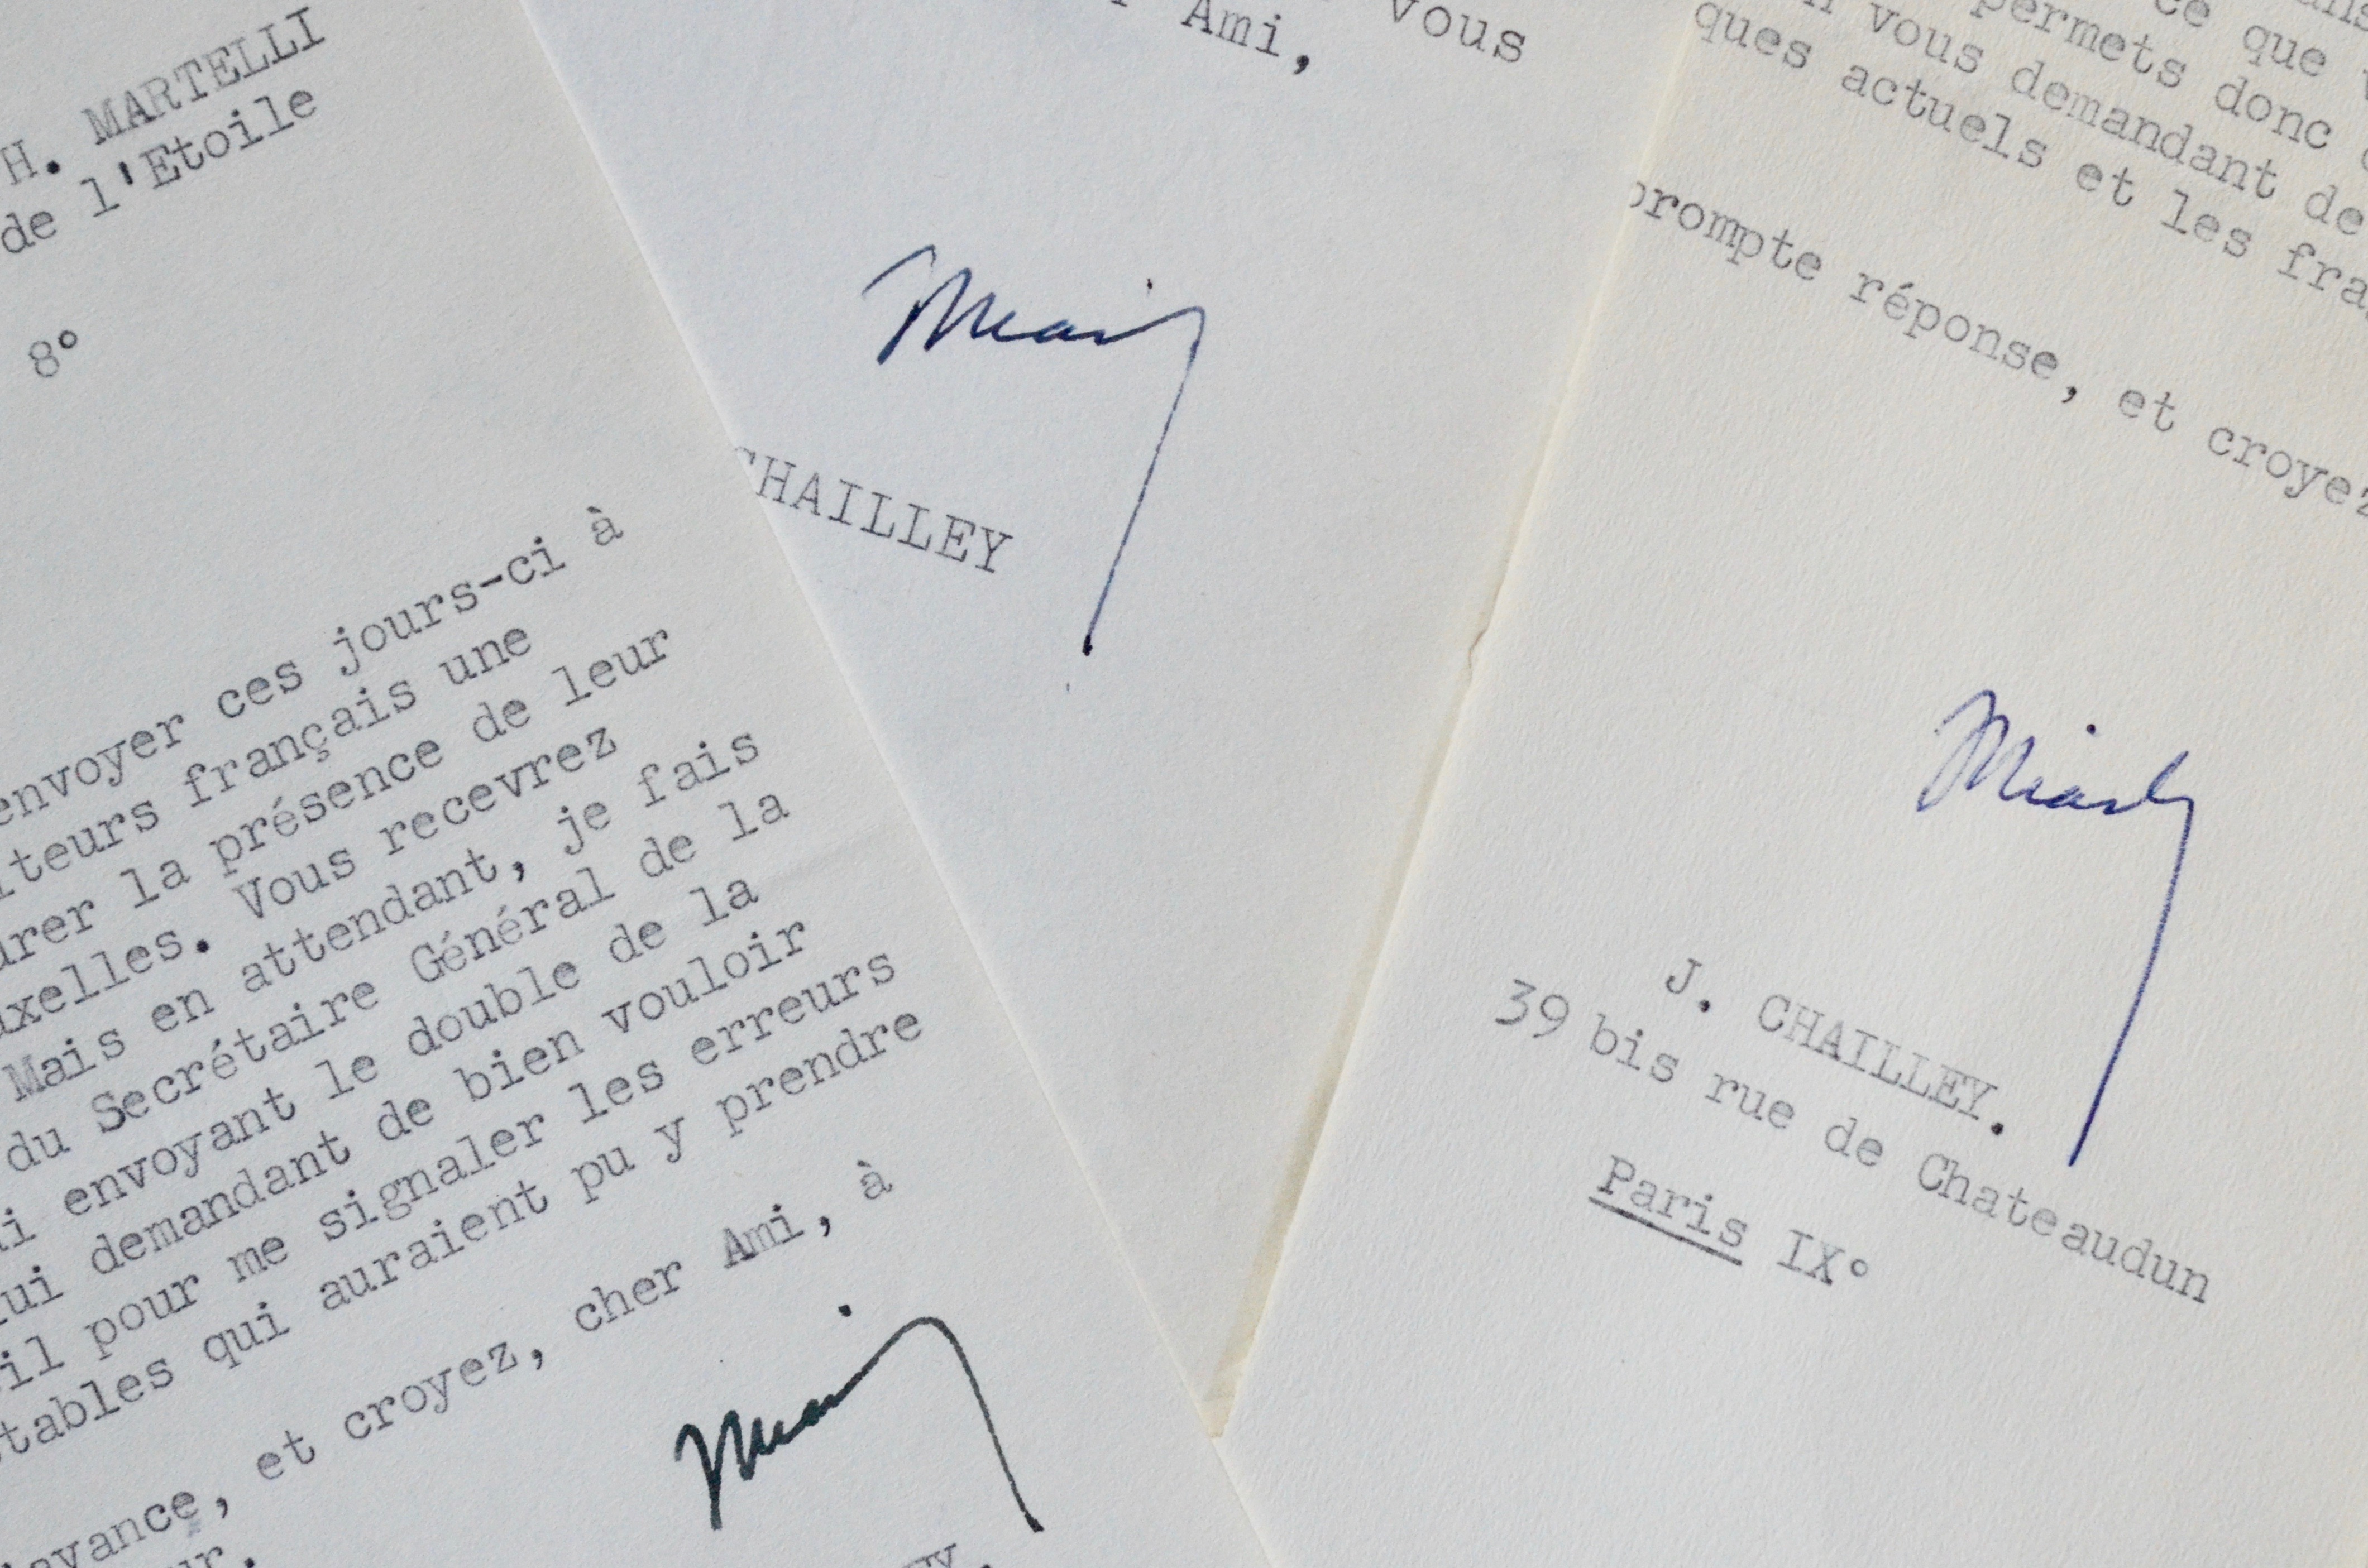 H. MARTELLI
de l'Etoile
8°
envoyer ces jours-ci à
teurs français une
rer la présence de leur
xelles. Vous recevrez
Mais en attendant, je fais
du Secrétaire Général de la
i envoyant le double de la
ui demandant de bien vouloir
il pour me signaler les erreurs
tables qui auraient pu y prendre
avance, et croyez, cher Ami, à
vous
Ami,
CHAILLEY
ce que
permets donc
vous demandant de
ques actuels et les fra
prompte réponse, et croyez
J. CHAILLEY.
39 bis rue de Chateaudun
Paris IX°